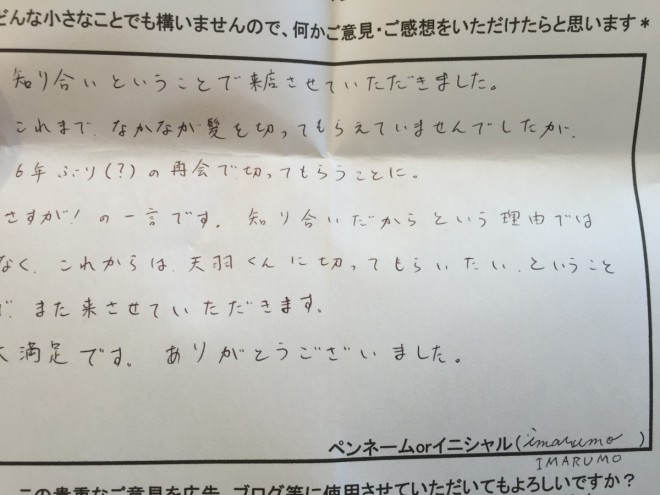 どんな小さなことでも構いませんので、何かご意見・ご感想をいただけたらと思います*
知り合いということで来店させていただきました。
これまで、なかなか髪を切ってもらえていませんでしたが、
6年ぶり(?)の再会で切ってもらうことに。
さすが!の一言です。知り合いだからという理由では
なく、これからは、天羽くんに切ってもらいたい、ということ
で、また来させていただきます。
大満足です。ありがとうございました。
ペンネームorイニシャル(imarumo)
IMARUMO
この貴重なご意見を広告、ブログ等に使用させていただいてもよろしいですか?